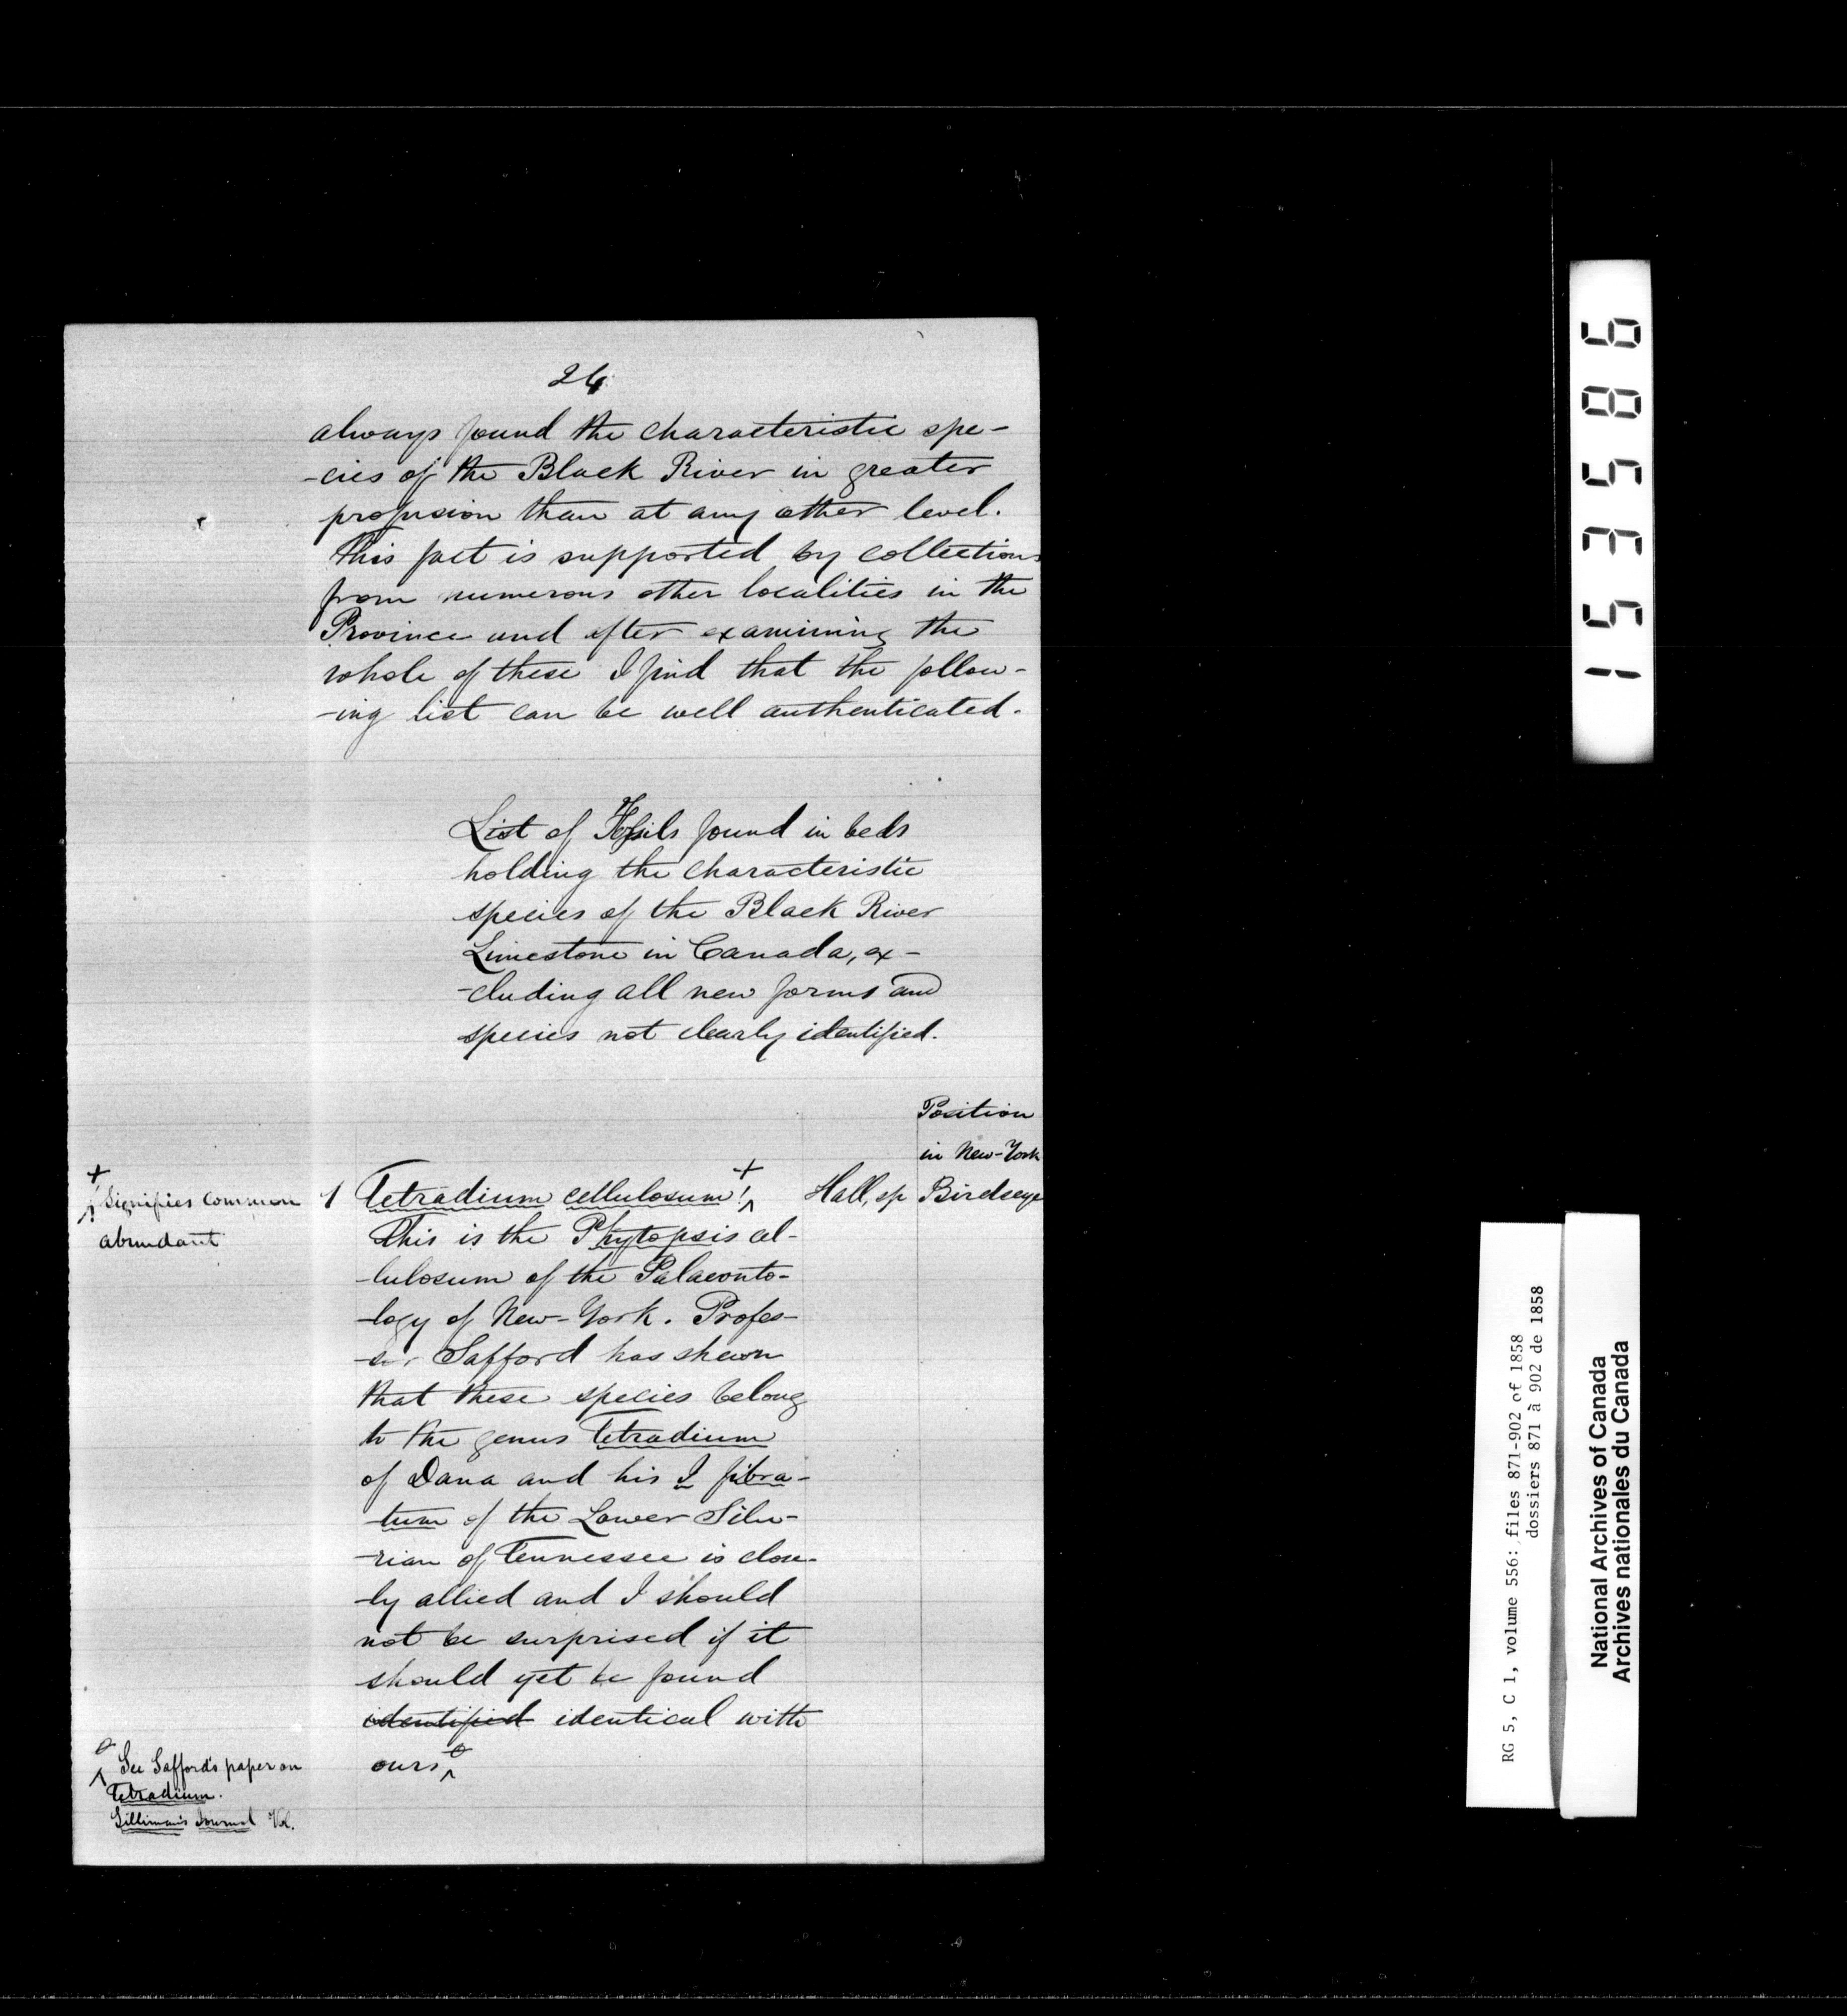 24
always found the characteristic spe-
-cies of the Black River in greater
profusion than at any other level.
This fact is supported by collections
from numerous other localities in the
Province and after examining the
whole of these I find that the follow-
-ing list can be well authenticated.
List of Fossils found in beds
holding the characteristic
species of the Black River
Limestone in Canada, ex-
-cluding all new forms and
species not clearly identified.
Position
in New-York
1 Tetradium cellulosum! + Hall, sp Birdseye
+ ! Signifies common
abundant
This is the Phytopsis cel-
-lulosum of the Palaeonto-
-logy of New-York. Profes-
-sor Safford has shewn
that these species belong
to the genus Tetradium
of Dana and his T fibra-
-tum of the Lower Silu-
-rian of Tennessee is close-
-ly allied and I should
not be surprised if it
should yet be found
identified identical with
ours
See Safford's paper on
Tetradium.
Silliman's Journal Vol.
153586
RG 5, C 1, volume 556: files 871-902 of 1858
dossiers 871 à 902 de 1858
National Archives of Canada
Archives nationales du Canada